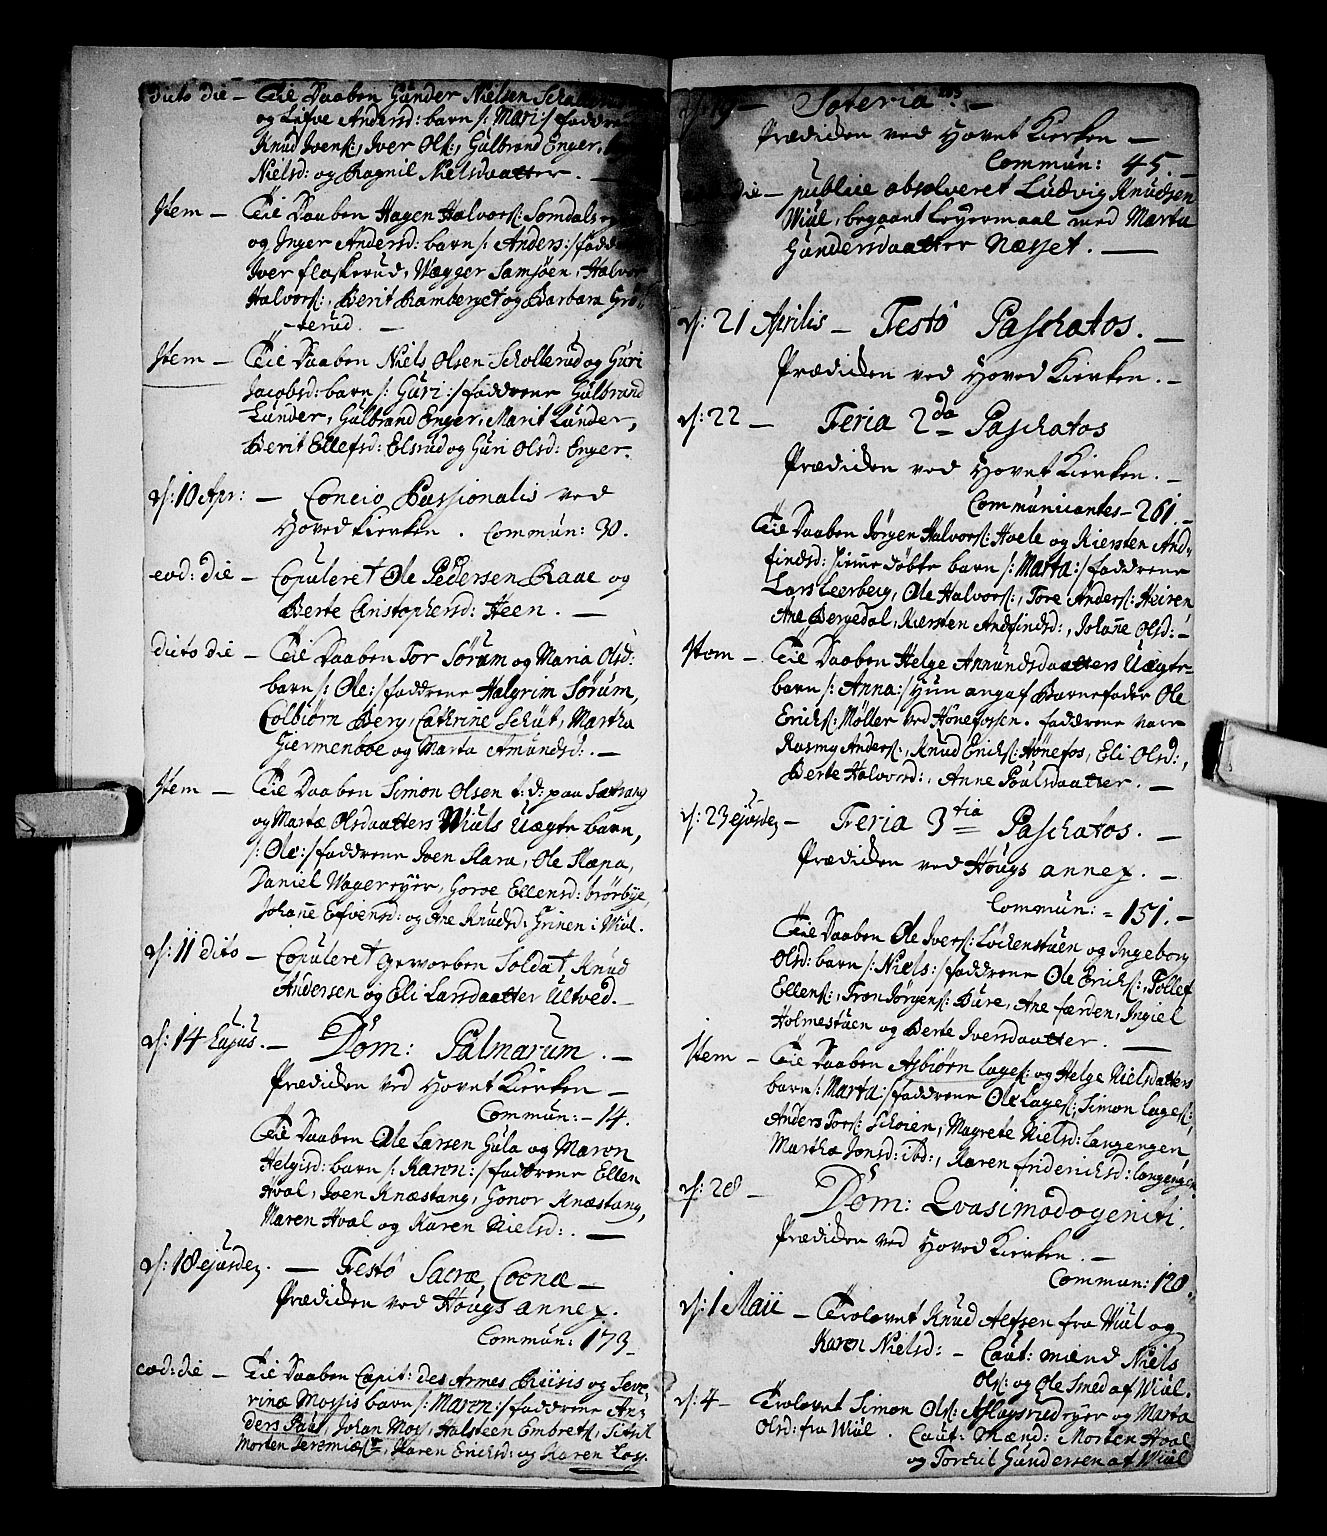 dito die — Till Daaben Gunder Nielsen
og Lisve Andersd: barn /: Mari :/ faddrene
Knud Ivers:, Iver Ols:, Gulbrand Enger,
Nielsd: og Ragnil Nielsdaatter. —
Item — Till Daaben Hagen Halvors: Somdals
og Inger Andersd: barn /: Anders :/ faddr
Iver flaskerud, Wægger Samsøen, Halvor
Halvors:, Berit Ramberget og Barbara Grøt-
terud. —
Item — Till Daaben Niels Olsen Schollerud og Guri
Jacobsd: barn /: Guri :/ faddrene Gulbrand
Lunder, Gulbrand Enger, Marit Lunder,
Berit Ellefsd: Elsrud og Guri Olsd: Enger.
d: 10 Apr: — Concio Passionalis ved
Hoved Kierken. Commun: 30.
eod: die — Copuleret Ole Pedersen Raae og
Berte Cristophersd: Heen. —
dito die — Till Daaben Tor Sørum og Maria Olsd:
barn /: Ole :/ faddrene Halgrim Sørum,
Colbiørn Berg, Cathrine Schüt, Martha
Giermenboe og Marta Amundsd: —
Item — Till Daaben Simon Olsen t: d: paa Sætrang
og Martæ Olsdaatters Wiuls Uægte barn,
/: Ole :/ faddrene Joen Klara, Ole Klæpa,
Daniel Wagerøyer, Goroe Ellensd: brørbye,
Johañe Eefvensd: og Ane Knudsd: Grinen i Wiul.
d: 11 dito — Copuleret Geworben Soldat Knud
Andersen og Eli Larsdaatter Ultved. —
d: 14 hujus. — Dom: Palmarum. —
Prædiken ved Hovet Kierken —
Commun: — 14.
Till Daaben Ole Larsen Gula og Maren
Helgisd: barn /: Karen :/ faddrene Ellen
Hval, Joen Knæstang, Gonor Knæstang,
Maren Hval og Karen Nielsd: —
d: 18 ejusdem. — Festo Sacræ Coenæ —
Prædiken ved Hougs annex.
Commun: 173
eod: die — Till Daaben Capit: des Armes Riisis og Seve-
rinæ Mossis barn /: Maren :/ faddrene An-
ders Paus, Johan Mos, Halsteen Embrets,
Morten Jeremiæs:, Karen Erichsd: og Karen
d: 19 — Soteria. —
Prædiken ved Hovet Kierken —
Commun: 45. —
die — publice absolveret Ludvig Knudsen
Wiul, begaaet Leyermaal med Marta
Gundersdaatter Næsset. —
d: 21 Aprilis — Festo Paschatos. —
Prædiken ved Hoved Kierken. —
d: 22 — Feria 2da Paschatos
Prædiken ved Hovet Kierken. —
Communicantes — 261. —
Till Daaben Jørgen Halvors: Hvele og Kiersten And-
findsd: hiemedøbte barn /: Marta :/ faddrene
Lars Leerberg, Ole Halvors:, Tore Anders: Heiren
Ane Bergedal, Kiersten Andfindsd:, Johañe Olsd: —
Item — Till Daaben Helge Annundsdaatters Uægte-
barn /: Anna :/ Hun angaf Barnefader Ole
Erichs: Møller ved Hønefossen. faddrene vare
Rasmus Anders:, Knud Erichs: Hønefos, Eli Olsd:,
Berte Halvorsd:, Anne Poulsdaatter. —
d: 23 ejusdem — Feria 3tia Paschatos. —
Prædiken ved Hougs annex. —
Commun: — 151. —
Till Daaben Ole Ivers: Løckenstuen og Ingeborg
Olsd: barn /: Niels :/ faddrene Ole Erichs:, Tollef
Ellens:, Tron Jørgens: Bure, Ane færden, Ingiel
Holmestuen og Berte Iversdaatter. —
Item — Till Daaben Asbiørn Lages: og Helge Nielsdatters
barn /: Marta :/ faddrene Ole Lages: Simon Lages:
Anders Tors: Schoien, Magrete Nielsd: Langengen
Martha Jonsd: ibd:, Karen friderichsd: Langengen
d: 28 — Dom: Qvasimodogeniti.
Prædiken ved Hoved Kierken. —
Commun: 120.
d: 1 Maii — Trolovet Knud Alfsen fra Wiul og
Karen Nielsd: — Caut: mænd Niels
Ols: og Ole Smed af Wiul.
d: 4 — Trolovet Simon Ols: Aslagsriedeyer og Marta
Olsd: fra Wiul. Caut: Mænd: Morten Hval
og Torchil Gundersen af Wiul